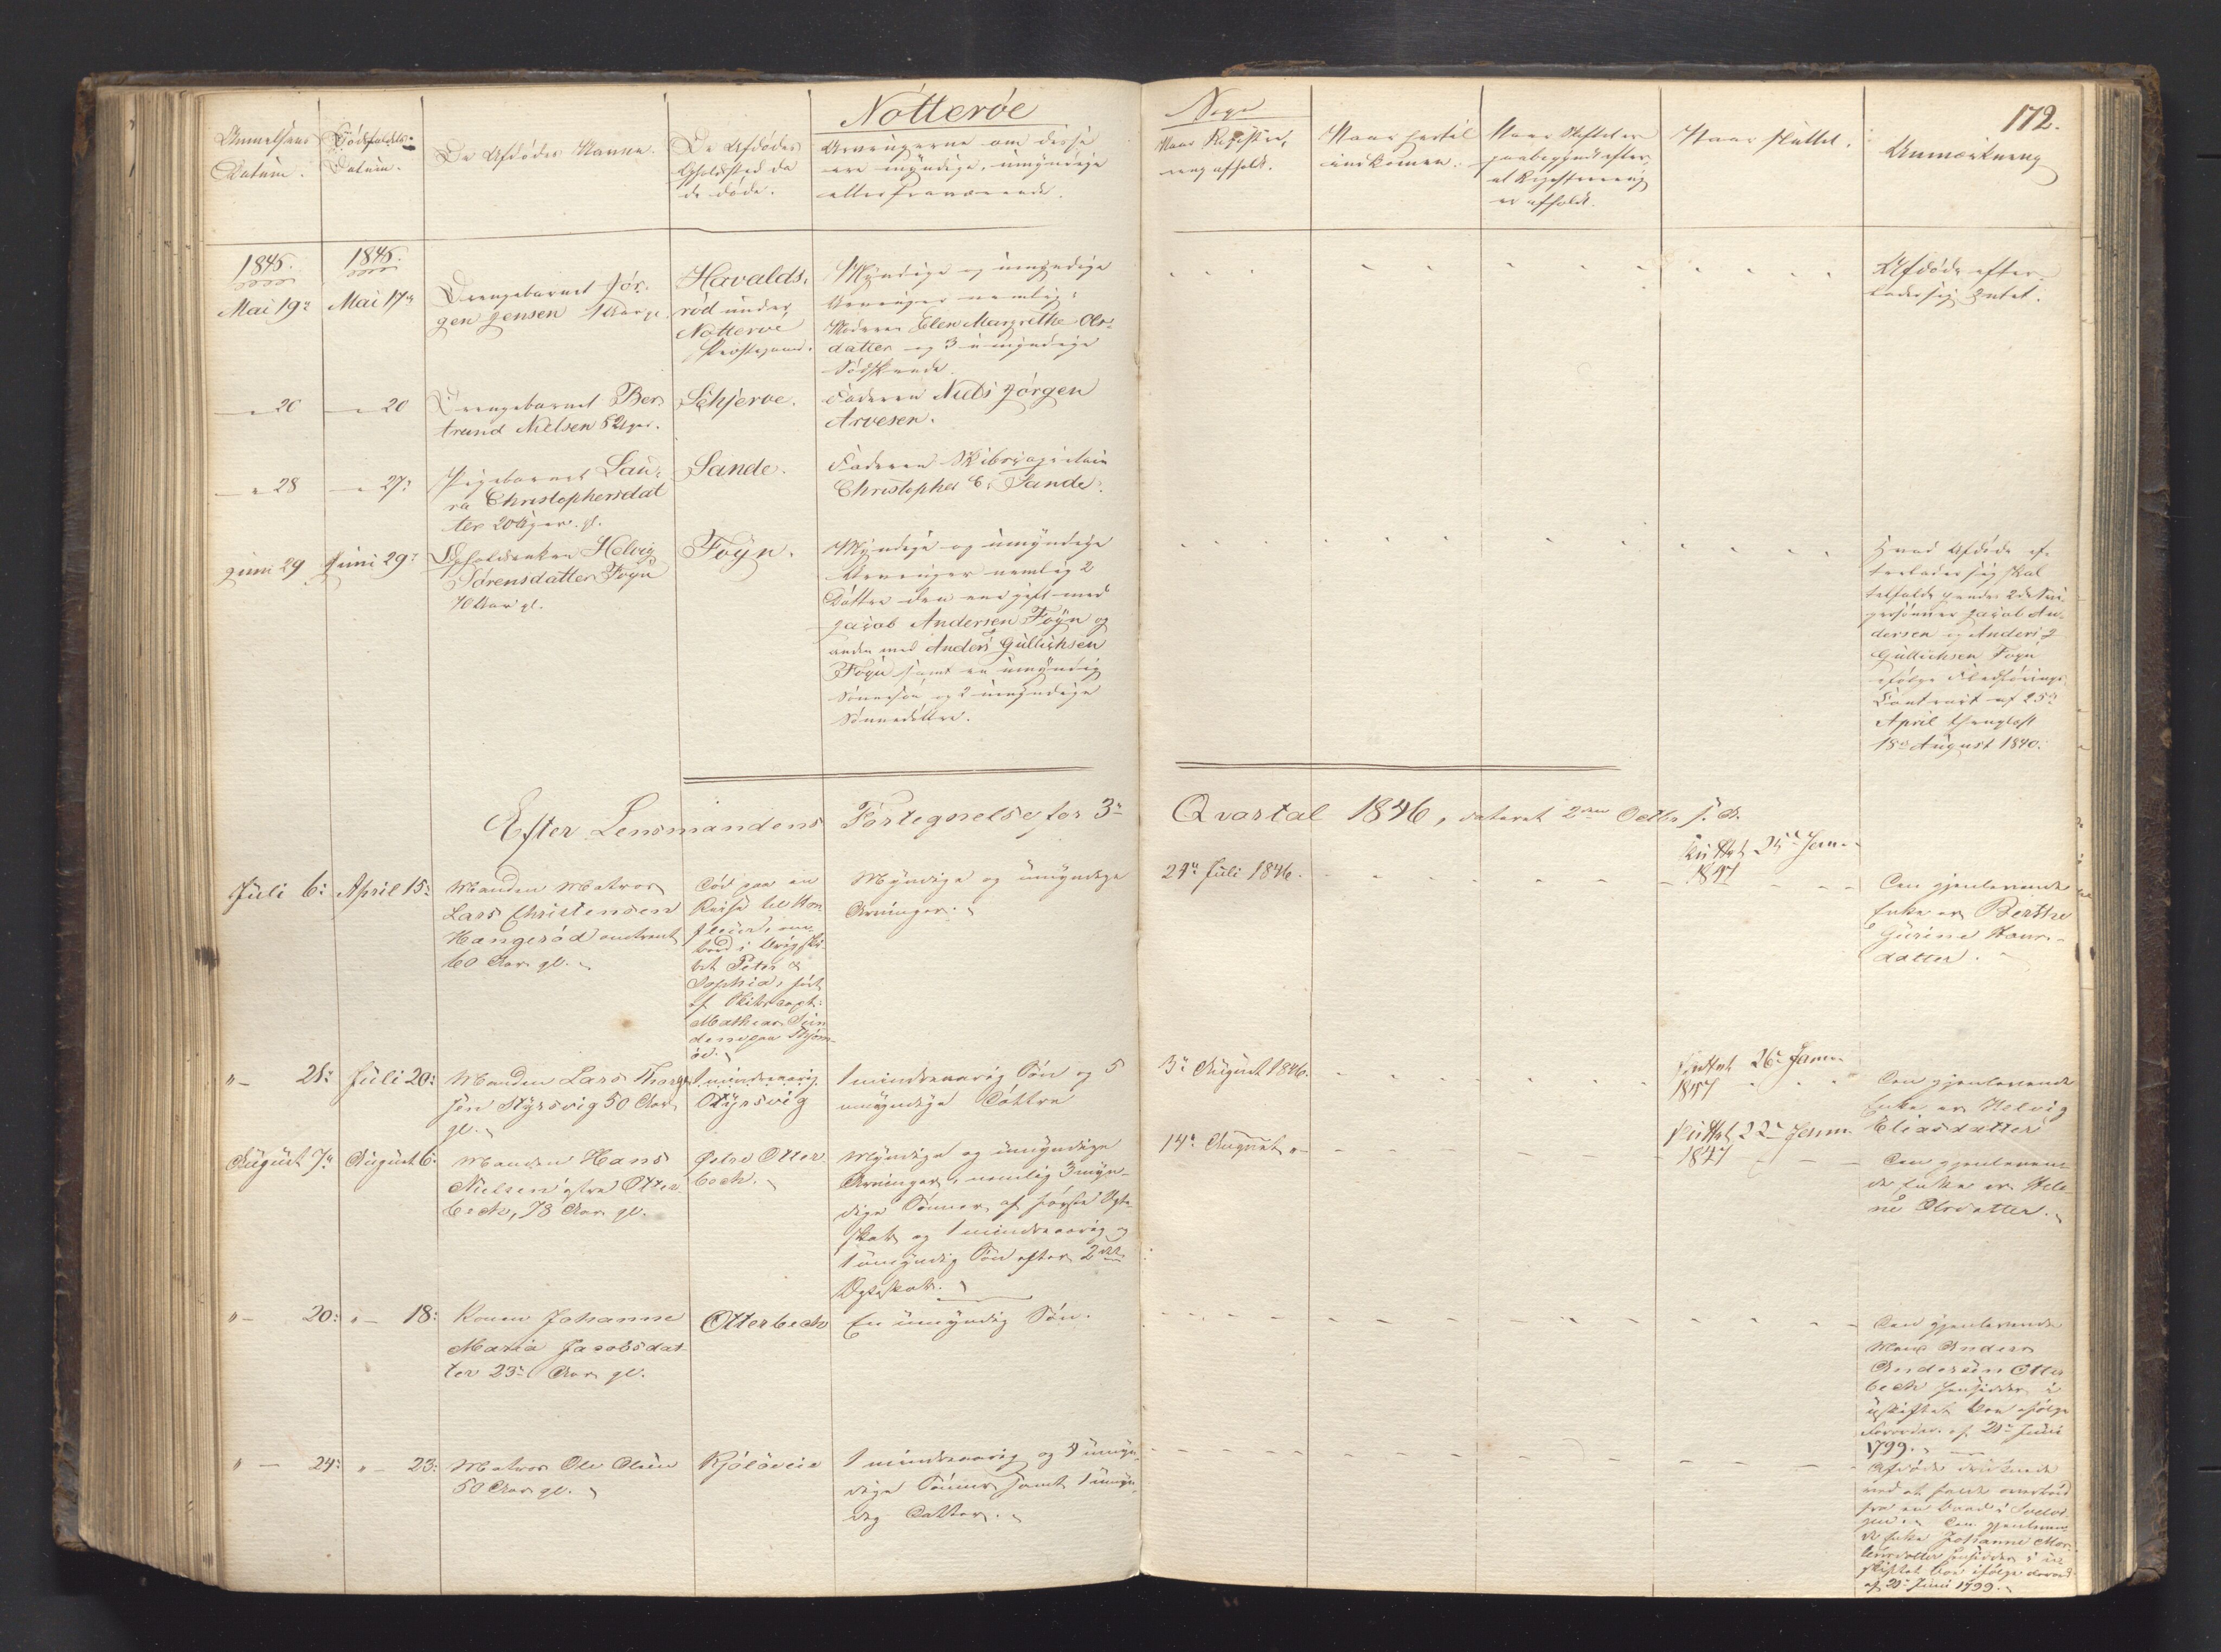 Nøtterøe
Sogn
172.
Anmeldsens
Datum.
Dødsfaldets
Datum.
De Afdødes Navne.
De Afdødes
Opholdssted da
de døde.
Arvingerne om disse
ere myndige, umyndige
eller fraværende.
Naar Registre-
ring afholdt.
Naar hertil
indkommen.
Naar Skiftet er
paabegyndt efter
at Registrering
er afholdt.
Naar sluttet.
Anmærkning
1846.
1846.
Mai 19de
Mai 17de
Drengebarnet Jør-
gen Jensen 1 Aar gl.
Havalds-
rød under
Nøtterøe
Præstegjeld.
Myndige og umyndige
Arvinger nemlig:
Moderen Elen Margrethe Ols-
datter og 3 umyndige
Sødskende.
Afdøde efter-
lader sig Intet.
" 20
" 20
Drengebarnet Ber-
trand Nielsen 5 Uger.
Schjerve.
Faderen Niels Jørgen
Arvesen.
" 28
" 27:
Pigebarnet Lau-
ra Christophersdat
ter 20 Uger gl.
Sande.
Faderen Skibscapitain
Christopher C. Sande.
Juni 29
Juni 29:
Opholdsenken Helvig
Sørensdatter Føyn
70 Aar gl.
Føyn.
Myndige og umyndige
Arvinger nemlig 2
Døttre den ene gift med
Jacob Andersen Føyn og
anden med Anders Gullichsen
Føyn samt en umyndig
Sønnesøn og 2 umyndige
Sønnedøttre.
Hvad Afdøde ef-
terlader sig skal
tilfalde hendes 2de Svi-
gersønner Jacob An-
dersen og Anders
Gullichsen Føyn
ifølge Fledførings
Contract af 25de
April thinglæst
18de August 1840.
Efter Lensmandens Fortegnelse for 3de Qvartal 1846, dateret 2den Octbr s. A.
Juli 6:
April 15:
Manden Matros
Lars Christensen
Hængsrød omtrent
60 Aar gl.
Død paa en
Reise til Hon-
fleur, om-
bord i Brigski-
bet Peter &
Sophia, ført
af Skibscapt:
Mathias
paa Tjøm-
øe.
Myndige og umyndige
Arvinger.
24de Juli 1846.
Sluttet 25de Janr.
1847
Den gjenlevende
Enke er Berthe
Gurine Hans-
datter.
" 28:
Juli 20:
Manden Lars Thorge-
sen Styrsvig 50 Aar
gl.
1 mindreaarig
Styrsvig
1 mindreaarig Søn og 5
umyndige Døttre
3de August 1846.
Sluttet 26de Janr.
1847
Den gjenlevende
Enke er Helvig
Eliasdatter
August 7de
August 6:
Manden Hans
Nielsen østre Otter
bech, 78 Aar gl.
Østre Otter
bech.
Myndige og umyndige
Arvinger, nemlig 3 myn-
dige Sønner af første Ægte
skab og 1 mindreaarig og
1 umyndig Søn efter 2det
Ægteskab.
14de August "
Sluttet 22de Janr.
1847
Den gjenleven-
de Enke er Hele-
ne Olsdatter.
" 20:
" 18:
Konen Johanne
Maria Jacobsdat
ter 23 Aar gl.
Otterbech
En umyndig Søn.
Den gjenlevende
Mand Anders
Andersen Otter
bech hensidder i
uskiftet Boe ifølge
Forordn. af 21de Juni
1799.
" 24:
" 23:
Matros Ole Olsen
50 Aar gl.
Kjøløveie
1 mindreaarig og 4 umyn-
dige Sønner samt 1 umyn-
dig Datter.
Afdøde druknede
ved at falde overbord
fra en Baad i
Den gjenleven-
de Enke Johanne Mor-
tensdatter hensidder i u-
skiftet Boe ifølge Forord.
af 21de Juni 1799.